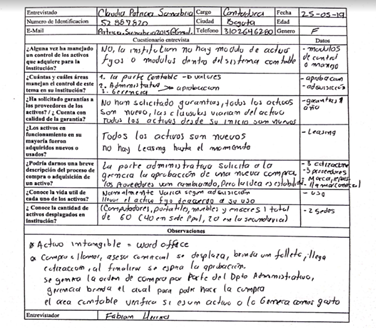 Entrevistado Claudia Patricia Sanabria Cargo Contadora Fecha 25-05-19
Numero de Identificacion 52587820 Ciudad Bogota Edad
E-Mail Patricia.Sanabria2015@Gmail. Telefono 3102646280 Genero F
Cuestionario entrevista Datos
¿Alguna vez ha manejado un control de los activos que adquiere para la institución? NO, la institucion no hay modulo de activos fijos o modulos dentro del sistema contable - modulos de control o manejo
¿Cuántas y cuáles áreas manejan el control de este tema en su institución? 1. la parte contable → valores 2. Administrativa 3. Gerencia > aprobacion - aprobacion - adquisicion
¿Ha solicitado garantías a los proveedores de los activos? / ¿ Cuenta con calidad de la garantía? No han solicitado garantias, todos los activos son nuevos, las clausulas vienen del activo todos los activos desde su inicio son nuevos - garantias
¿Los activos en funcionamiento en su mayoría fueron adquiridos nuevos o usados? Todos los activos son nuevos no hay leasing hasta el momento - leasing
¿Podría darnos una breve descripción del proceso de compra o adquisición de un activo? La parte administrativa solicita a la gerencia la aprobacion de una nueva compra - 3 cotizaciones - 3 proveedores
¿Conoce la vida útil de cada uno de los activos? Normalmente varia segun adquisicion lleve el activo fijo deacuerdo a su uso - uso
¿ Conoce la cantidad de activos desplegados en institución? (Computadores, portatiles, muebles y enseres) total de 60 (40 en sede Ppal, 20 en la secundaria) - 2 sedes
Observaciones
* Activo intangible = word office
* Compra → llamar, asesor comercial se desplaza, brinda un folleto, llega cotizacion, al finalizar se espera la aprobación.
se genera la orden de compra por parte del Dpto Administrativo,
gerencia brinda el aval para poder hacer la compra
el area contable verifica si es un activo o lo Genera como gasto
Entrevistador Fabian